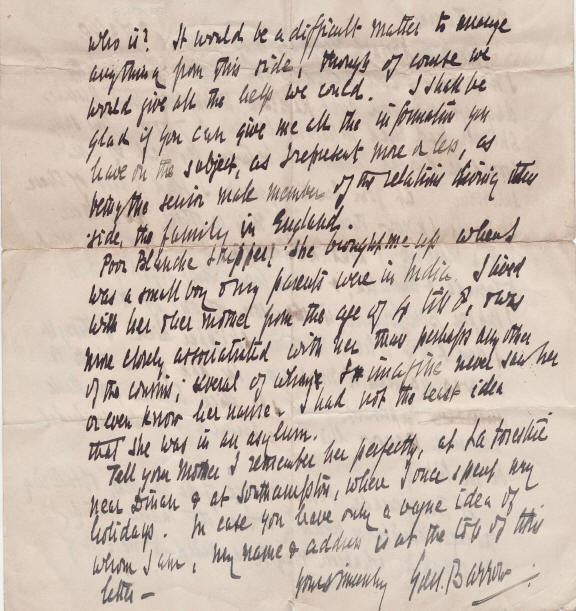 who is? It would be a difficult matter to arrange
anything from this side, though of course we
would give all the help we could. I shall be
glad if you can give me all the information you
have on the subject, as I represent more or less, as
being the senior male member of the relations living this
side, the family in England.
Poor Blanche! She brought me up when I
was a small boy & my parents were in India. I lived
with her & her mother from the age of 4 till 8, & was
more closely associated with her than perhaps any other
of the cousins; several of whom, I imagine never saw her
or even know her name. I had not the least idea
that she was in an asylum.
Tell your Mother I remember her perfectly, at La
near Dinan & at Southampton, where I once spent my
holidays. In case you have only a vague idea of
whom I am, my name & address is at the top of this
letter –
Yours sincerely Barrow.